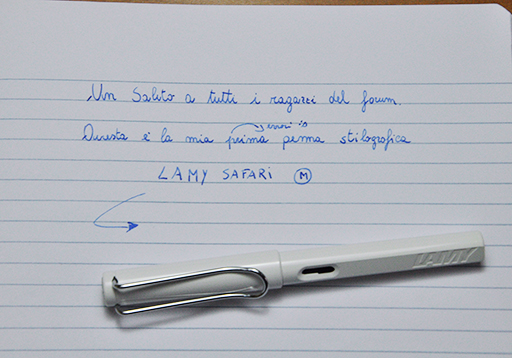 Un Saluto a tutti i ragazzi del forum.
errori is
Questa è la mia prima penna stilografica
LAMY SAFARI M
LAMY